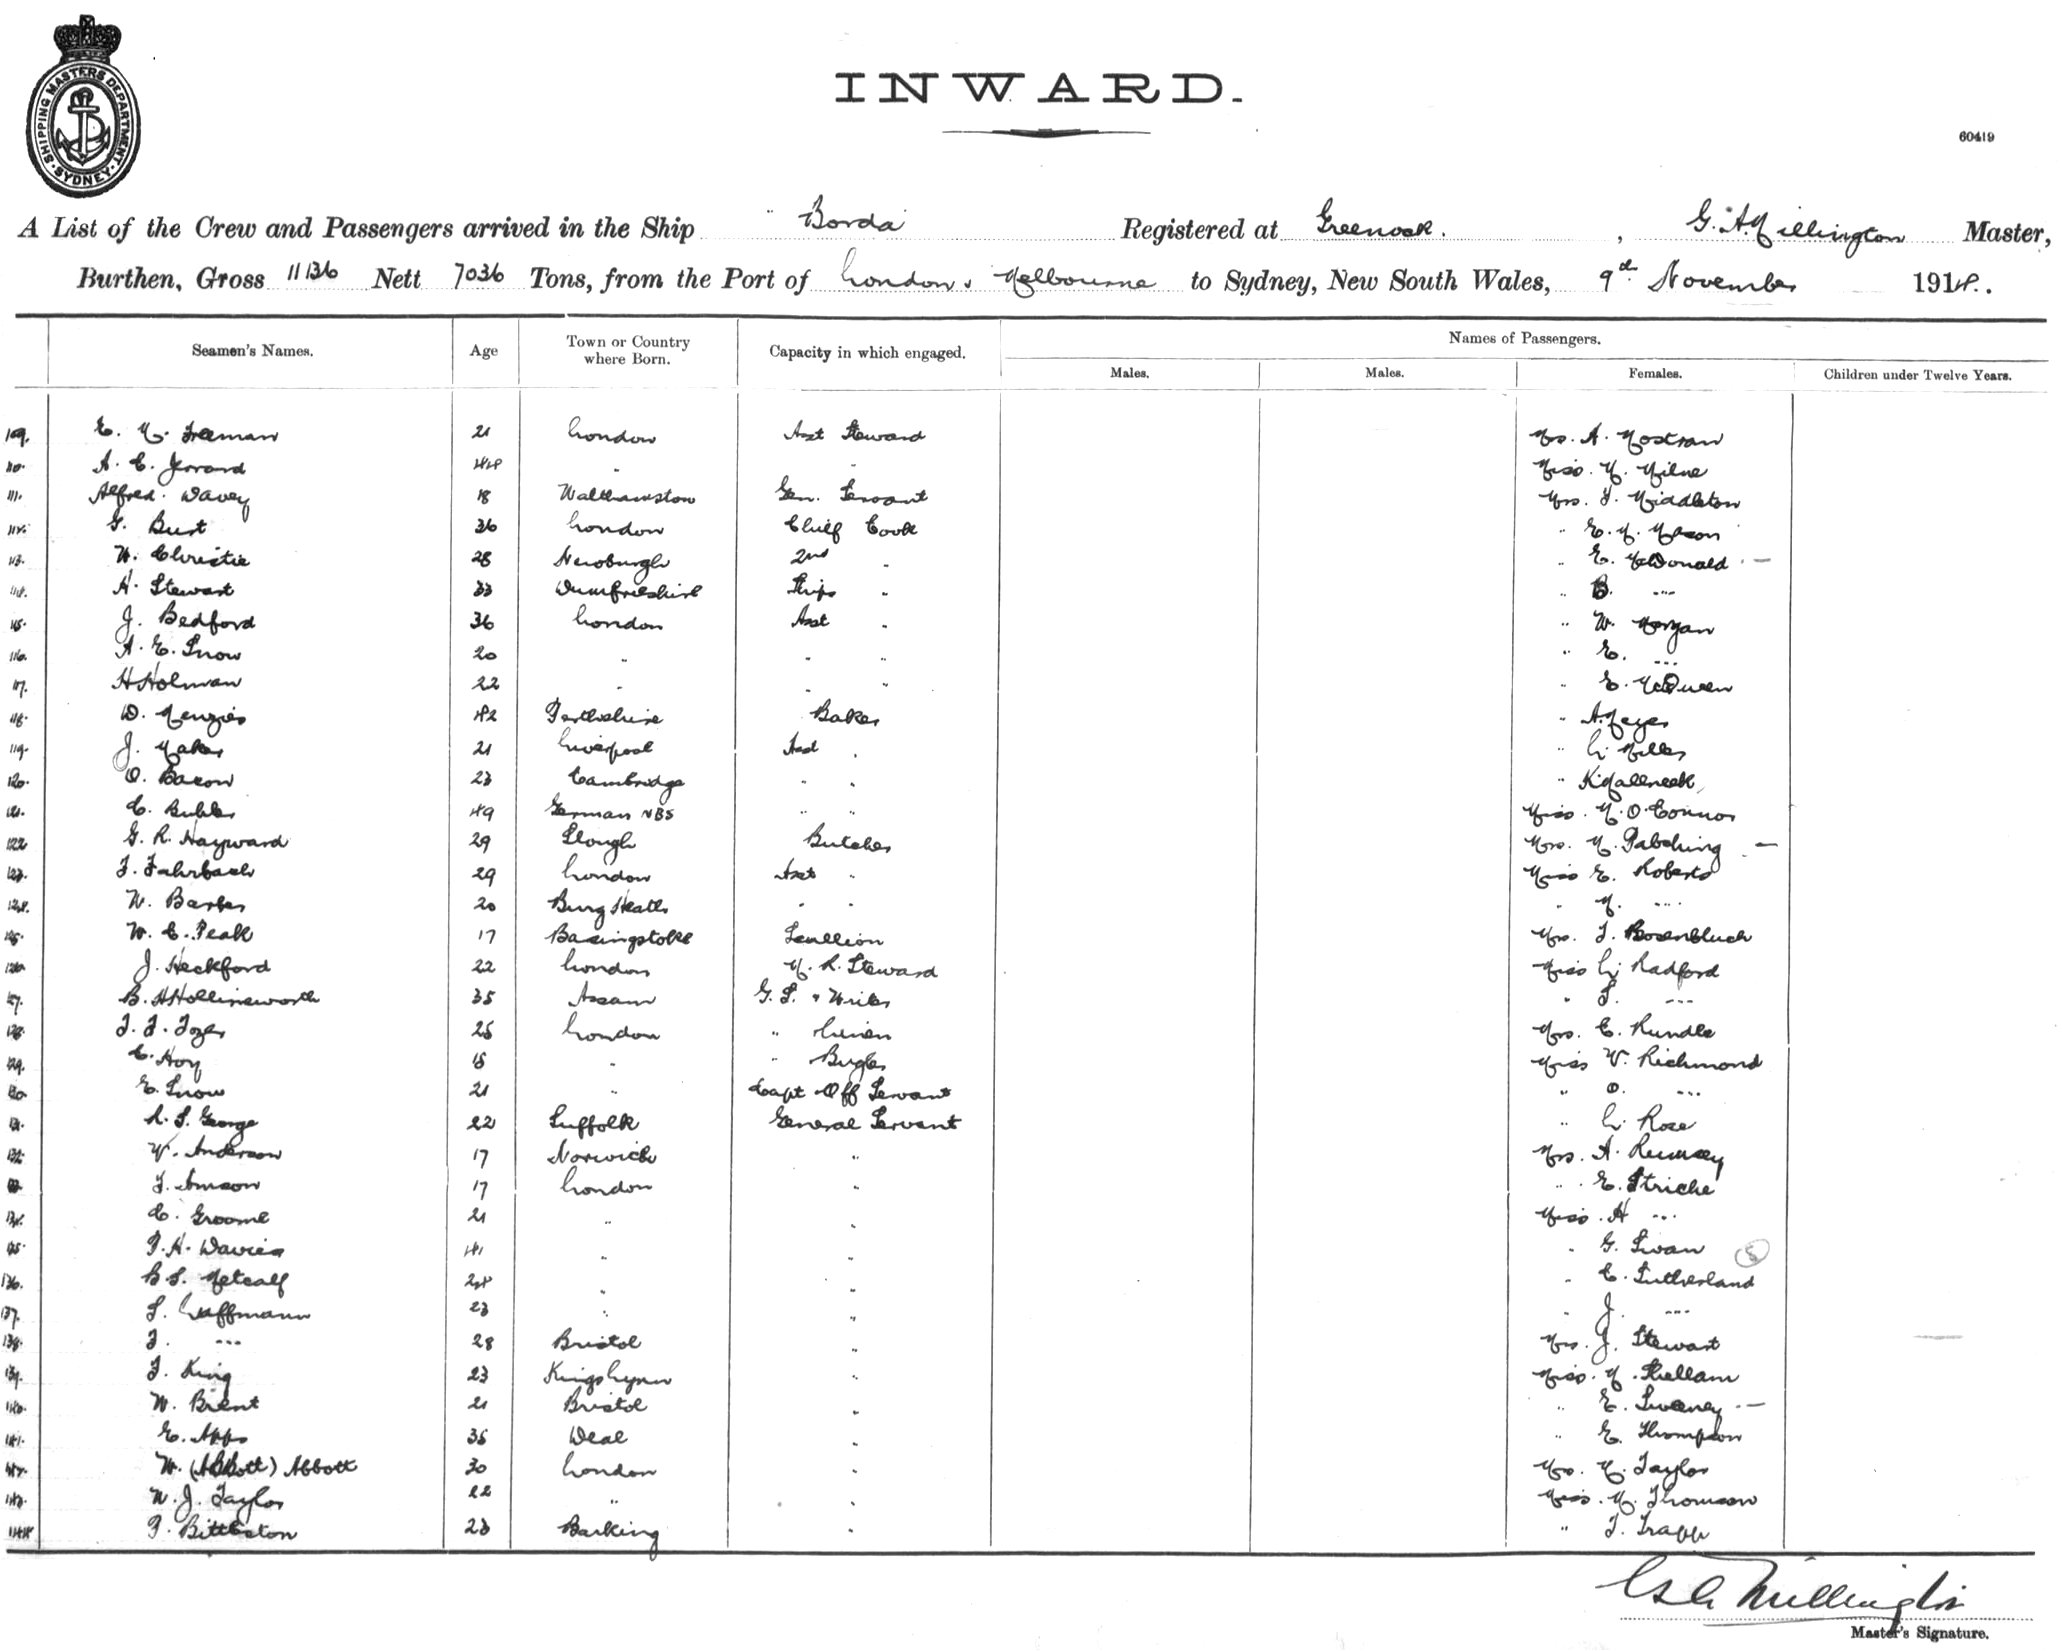 SHIPPING MASTERS DEPARTMENT · SYDNEY ·
INWARD.
60419
A List of the Crew and Passengers arrived in the Ship "Borda Registered at Greenock. , G. A. Millington Master,
Burthen, Gross 11136 Nett 7036 Tons, from the Port of London & Melbourne to Sydney, New South Wales, 9th November 1914.
Seamen's Names. Age Town or Country where Born. Capacity in which engaged. Names of Passengers.
Males. Males. Females. Children under Twelve Years.
109. E. M. Freeman 21 London Asst Steward Mrs. A. Mostran
110. A. E. Jerrard 44 " " Miss. M. Milne
111. Alfred. Davey 18 Walthamstow Gen. Servant Mrs. F. Middleton
112. G. Burt 36 London Chief Cook " E. M. Mason
113. W. Christie 28 Newburgh 2nd " " E. McDonald -
114. A. Stewart 33 Dumfrieshire Ships " " B. "
115. J. Bedford 36 London Asst " " W. Morgan
116. A. E. Snow 20 " " " " E. "
117. H Holman 22 " " " " E. McQueen
118. D. Menzies 42 Perthshire Baker " A. Meyer
119. J. Maker 21 Liverpool Asst " " L. Miller
120. O. Bacon 23 Cambridge " " "
121. C. 49 German NBS " " Miss. M. O'Connor
122. G. R. Hayward 29 Slough Butcher Mrs. M. -
123. F. Fahrbach 29 London Asst " Miss E. Roberts
124. W. Barber 20 Burg Heath " " " M. "
125. W. C. Peak 17 Basingstoke Scullion Mrs. F. Rosenbluck
126. J. Heckford 22 London M. R. Steward Miss L. Radford
127. B. H Hollinsworth 35 Assam G. S. & Writer " F. "
128. F. F. Tozer 25 London " Linen Mrs. C. Rundle
129. C. Hoy 18 " " Bugler Miss W. Richmond
130. E. Snow 21 " Capt Off Servant " O. "
131. R. S. George 22 Suffolk General Servant " L. Rose
132. W. Anderson 17 Norwich " Mrs. A. Rumsey
133. F. Amson 17 London " " E. Striche
134. C. Groome 21 " " Miss. A "
135. P. H. Davies 41 " " " G. Swan 5
136. B S. Metcalf 24 " " " C. Sutherland
137. S. Luffmann 23 " " " J. "
138. F. " 28 Bristol " Mrs. J. Stewart
139. F. King 23 Kings Lynn " Miss. M. Shellam
140. W. Brent 21 Bristol " " E. Sweeney -
141. E. Apps 35 Deal " " E. Thompson
142. W. (Abbott) Abbott 30 London " Mrs. M. Taylor
143. W. J. Taylor 22 " " Miss. M. Thomson
144. P. Bittleston 23 Barking " " F. Trapp
G A Millington
Master's Signature.